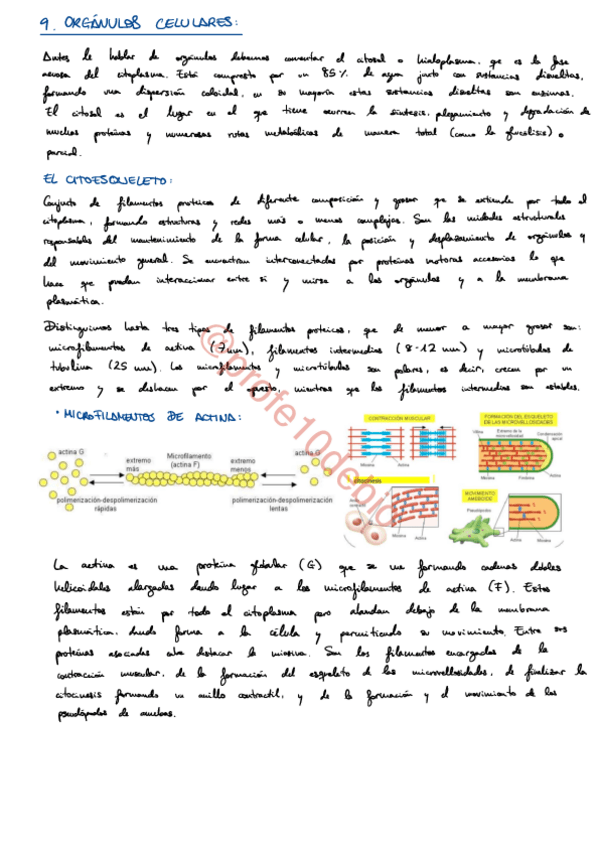 9. ORGÁNULOS CELULARES:
Antes de hablar de orgánulos debemos comentar el citosol o hialoplasma, que es la fase
acuosa del citoplasma. Está compuesto por un 85% de agua junto con sustancias disueltas,
formando una dispersión coloidal, en su mayoría estas sustancias disueltas son enzimas.
El citosol es el lugar en el que tiene ocurren la síntesis, plegamiento y degradación de
muchas proteínas y numerosas rutas metabólicas de manera total (como la glucolisis) o
parcial.
EL CITOESQUELETO:
Conjunto de filamentos proteicos de diferente composición y grosor que se extiende por todo el
citoplasma, formando estructuras y redes más o menos complejas. Son las unidades estructurales
responsables del mantenimiento de la forma celular, la posición y desplazamiento de orgánulos y
del movimiento general. Se encuentran interconectadas por proteínas motoras accesorias lo que
hace que puedan interaccionar entre sí y unirse a los orgánulos y a la membrana
plasmática.
Distinguimos hasta tres tipos de filamentos proteicos, que de menor a mayor grosor son:
microfilamentos de actina (7 nm), filamentos intermedios (8-12 nm) y microtúbulos de
tubulina (25 nm). Los microfilamentos y microtúbulos son polares, es decir, crecen por un
extremo y se deshacen por el opuesto, mientras que los filamentos intermedios son estables.
@profe10debio
• MICROFILAMENTOS DE ACTINA:
actina G
extremo más
Microfilamento (actina F)
extremo menos
actina G
polimerización-despolimerización rápidas
polimerización-despolimerización lentas
CONTRACCIÓN MUSCULAR
Miosina Actina
FORMACIÓN DEL ESQUELETO DE LAS MICROVELLOSIDADES
Villina
Extremo de la microvellosidad
Condensación apical
Miosina Fimbrina Actina
Citocinesis
Miosina Actina
MOVIMIENTO AMEBOIDE
Pseudópodos
Actina Miosina
La actina es una proteína globular (G) que se une formando cadenas dobles
helicoidales alargadas dando lugar a los microfilamentos de actina (F). Estos
filamentos están por todo el citoplasma pero abundan debajo de la membrana
plasmática, dando forma a la célula y permitiendo su movimiento. Entre sus
proteínas asociadas cabe destacar la miosina. Son los filamentos encargados de la
contracción muscular, de la formación del esqueleto de las microvellosidades, de finalizar la
citocinesis formando un anillo contráctil, y de la formación y el movimiento de los
pseudópodos de amebas.